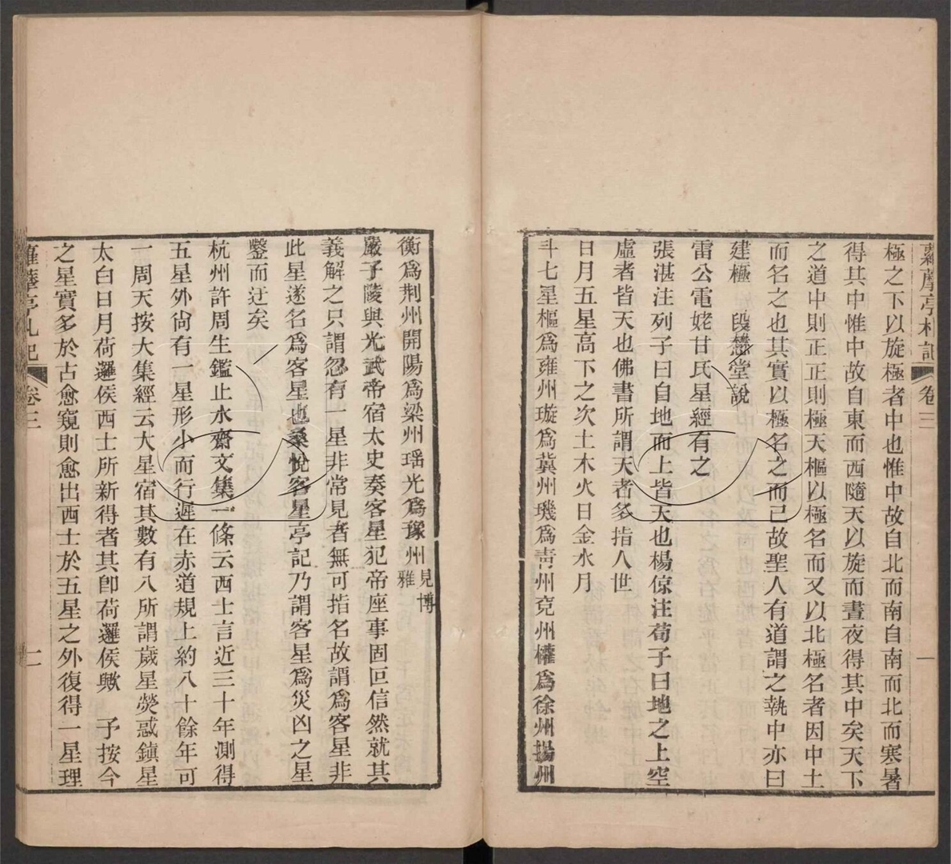 蘿藦亭札記 卷三 一
極之下以旋極者中也惟中故自北而南自南而北而寒暑
得其中惟中故自東而西隨天以旋而晝夜得其中矣天下
之道中則正正則極天樞以極名而又以北極名者因中土
而名之也其實以極名之而已故聖人有道謂之執中亦曰
建極 段懋堂說
雷公電姥甘氏星經有之
張湛注列子曰自地而上皆天也楊倞注荀子曰地之上空
虛者皆天也佛書所謂天者多指人世
日月五星高下之次土木火日金水月
斗七星樞為雍州璇為冀州璣為青州兗州權為徐州揚州
衡為荆州開陽為梁州瑤光為豫州 見博雅
嚴子陵與光武帝宿太史奏客星犯帝座事固叵信然就其
義解之只謂忽有一星非常見者無可指名故謂為客星非
此星遂名為客星也桑悅客星亭記乃謂客星為災凶之星
鑿而迂矣
杭州許周生鑑止水齋文集一條云西士言近三十年測得
五星外尙有一星形小而行遲在赤道規上約八十餘年可
一周天按大集經云大星宿其數有八所謂歲星熒惑鎮星
太白日月荷邏侯西士所新得者其卽荷邏侯歟 予按今
之星實多於古愈窺則愈出西士於五星之外復得一星理
蘿藦亭札記 卷三 二